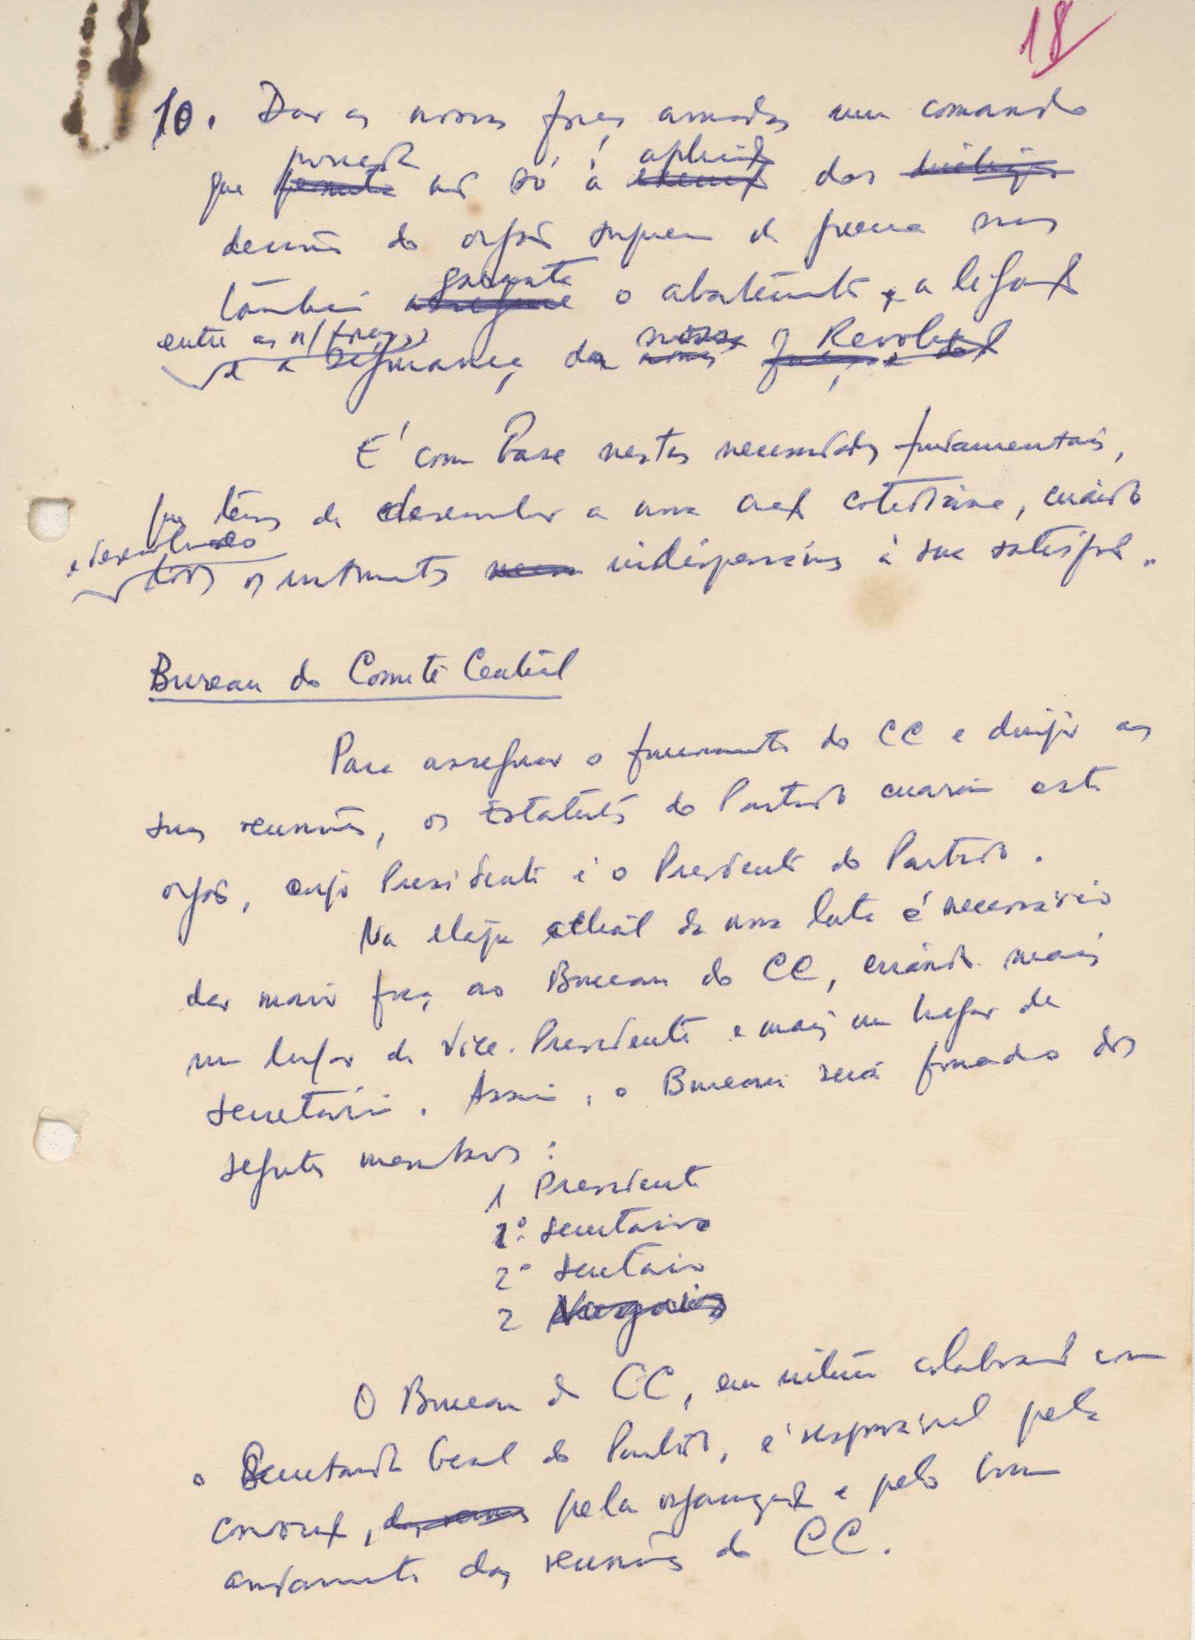 18
10. Dar às nossas forças armadas um comando
que proceda não só à aplicação das
decisões do orgão supremo da guerra mas
também garanta o abastecimento, a ligação
entre as n/ forças
e a segurança da nossa Revolução
É com base nestas necessidades fundamentais,
que temos de desenvolver a nossa acção cotidiana, criando
e desenvolvendo
todos os instrumentos indispensáveis à sua satisfação.
Bureau do Comité Central
Para assegurar o funcionamento do CC e dirigir as
suas reuniões, os Estatutos do Partido criaram este
orgão, cujo Presidente é o Presidente do Partido.
Na etapa actual da nossa luta é necessário
dar maior força ao Bureau do CC, criando mais
um lugar de Vice-Presidente e mais um lugar de
secretário. Assim, o Bureau será formado dos
seguintes membros:
1 Presidente
1º Secretário
2º Secretário
2 Vogais
O Bureau do CC, em íntima colaboração com
o Secretariado Geral do Partido, é responsável pela
convocação, pela organização e pelo bom
andamento das reuniões do CC.